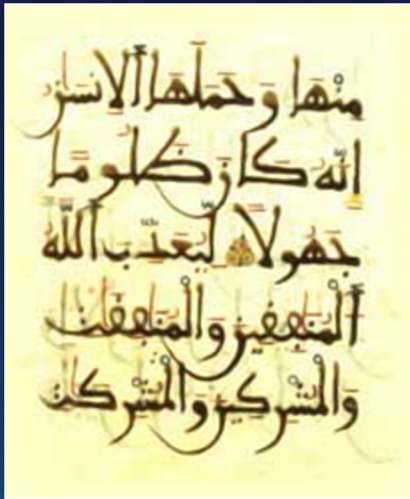 مِنْهَا وَحَمَلَهَا ٱلْإِنسَٰنُ
إِنَّهُ كَانَ ظَلُومًا
جَهُولًا لِّيُعَذِّبَ ٱللَّهُ
ٱلْمُنَٰفِقِينَ وَٱلْمُنَٰفِقَٰتِ
وَٱلْمُشْرِكِينَ وَٱلْمُشْرِكَٰتِ